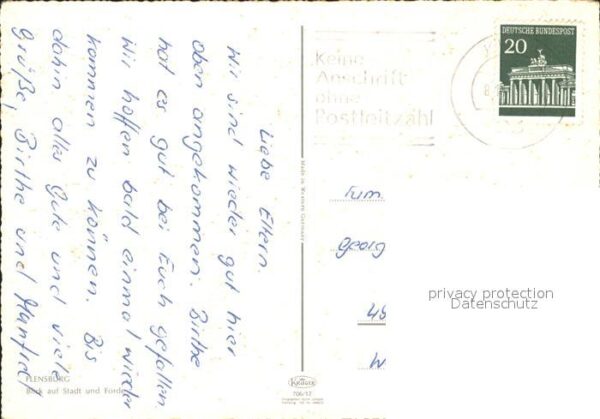 Liebe Eltern.
Wir sind wieder gut hier
oben angekommen. Birthe
hat es gut bei Euch gefallen
Wir hoffen bald einmal wieder
kommen zu können. Bis
dahin alles Gute und viele
Grüße, Birthe und Manfred
FLENSBURG
Blick auf Stadt und Förde
Made in Western Germany
KRÜGER
706/12
Keine
Anschrift
ohne
Postleitzahl
DEUTSCHE BUNDESPOST
20
Fum
Georg
45
W
privacy protection
Datenschutz